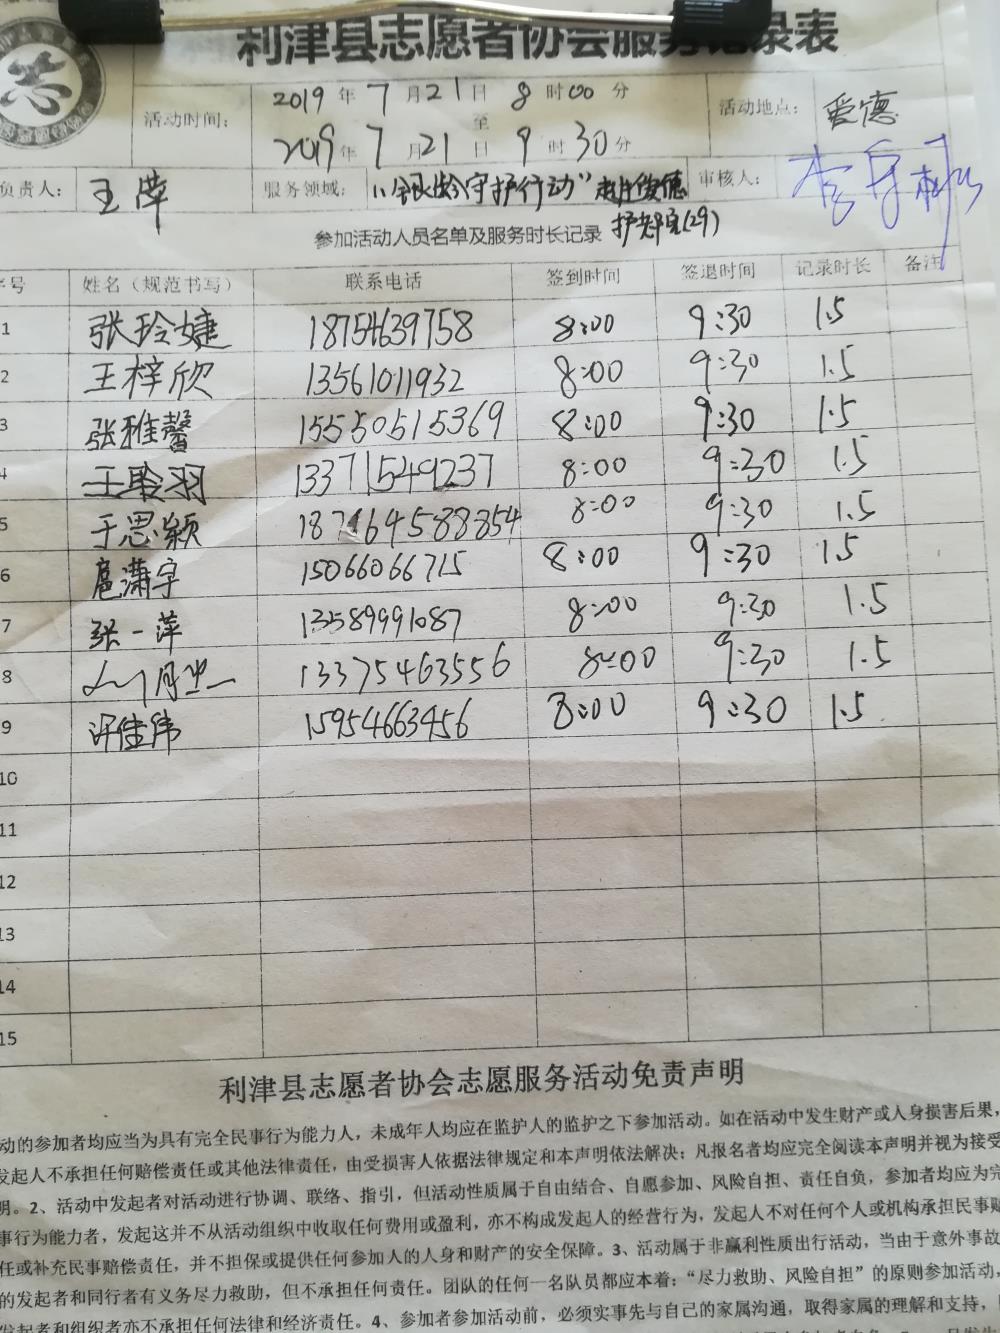 利津县志愿者协会服务记录表
活动时间：
2019年7月21日8时00分
至
2019年7月21日9时30分
活动地点： 爱德
负责人： 王萍 服务领域： "银龄守护行动" 爱德 审核人：
参加活动人员名单及服务时长记录 (29)
序号 姓名（规范书写） 联系电话 签到时间 签退时间 记录时长 备注
1 张玲婕 18754639758 8:00 9:30 1.5
2 王梓欣 13561011932 8:00 9:30 1.5
3 张雅馨 15550515369 8:00 9:30 1.5
4 王聆羽 13371549237 8:00 9:30 1.5
5 于思颖 8:00 9:30 1.5
6 扈潇宇 15066066715 8:00 9:30 1.5
7 张一萍 13589991087 8:00 9:30 1.5
8 13375463556 8:00 9:30 1.5
9 许佳伟 15954663456 8:00 9:30 1.5
10
11
12
13
14
15
利津县志愿者协会志愿服务活动免责声明
动的参加者均应当为具有完全民事行为能力人，未成年人均应在监护人的监护之下参加活动。如在活动中发生财产或人身损害后果，
发起人不承担任何赔偿责任或其他法律责任，由受损害人依据法律规定和本声明依法解决；凡报名者均应完全阅读本声明并视为接受
明。2、活动中发起者对活动进行协调、联络、指引，但活动性质属于自由结合、自愿参加、风险自担、责任自负，参加者均应为完
事行为能力者，发起这并不从活动组织中收取任何费用或盈利，亦不构成发起人的经营行为，发起人不对任何个人或机构承担民事赔
任或补充民事赔偿责任，并不担保或提供任何参加人的人身和财产的安全保障。3、活动属于非赢利性质出行活动，当由于意外事故
的发起者和同行者有义务尽力救助，但不承担任何责任。团队的任何一名队员都应本着：“尽力救助、风险自担”的原则参加活动，
发起者和组织者亦不承担任何法律和经济责任。4、参加者参加活动前，必须实事先与自己的家属沟通，取得家属的理解和支持，